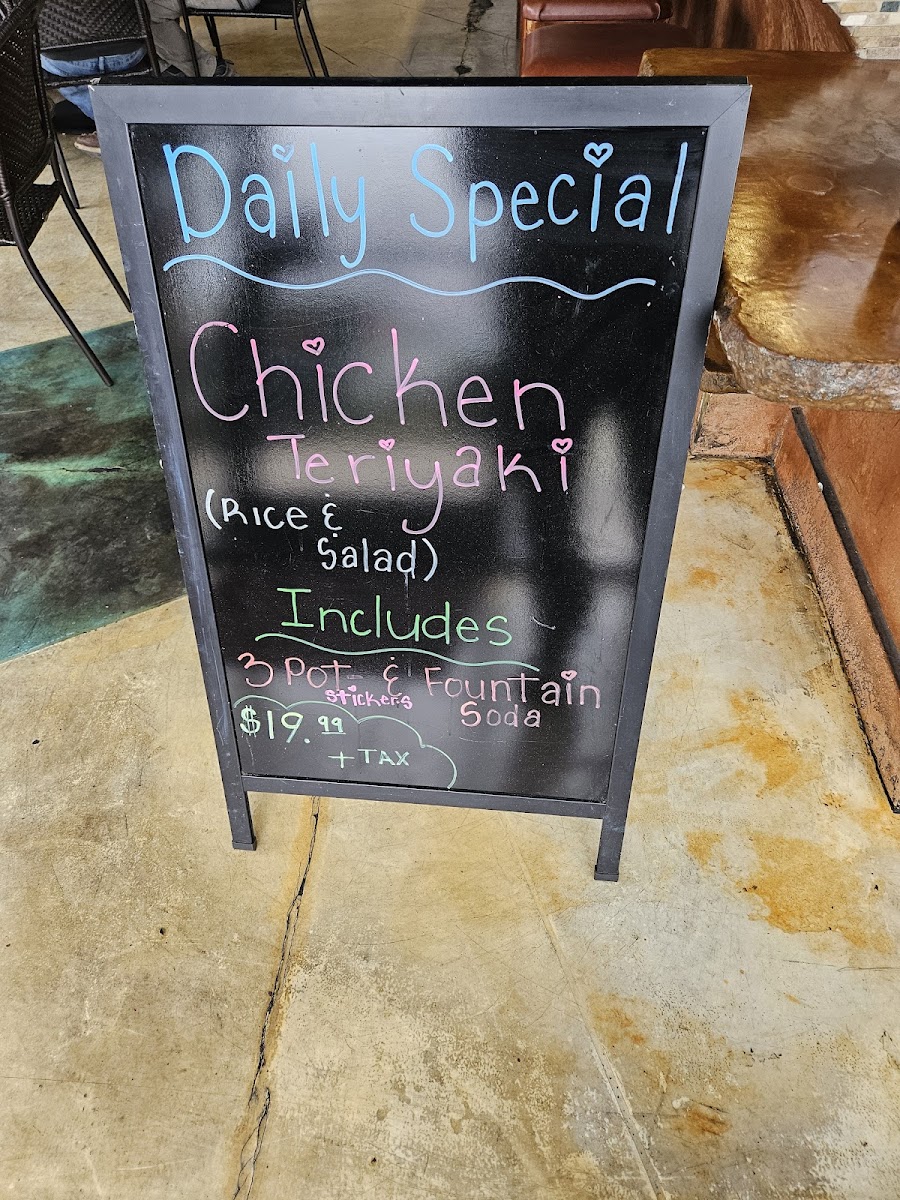 Daily Special
Chicken
Teriyaki
(Rice &
Salad)
Includes
3 Pot & Fountain
stickers Soda
$19.99
+ TAX